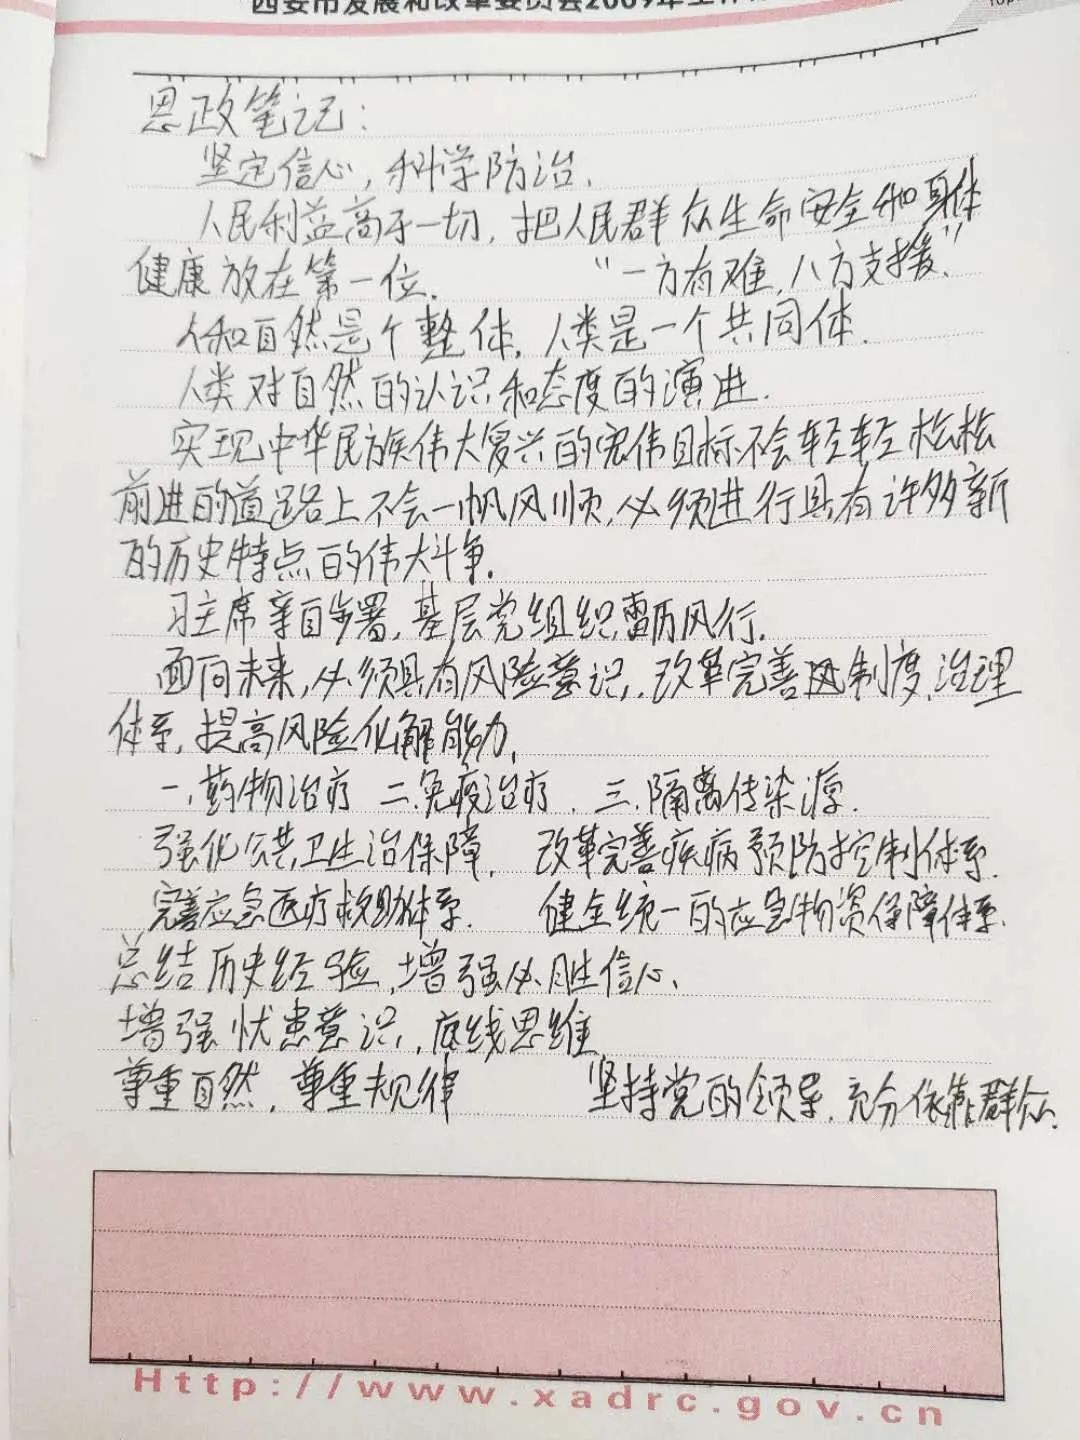 西安市发展和改革委员会2009年工作
思政笔记：
坚定信心，科学防治．
人民利益高于一切，把人民群众生命安全和身体
健康放在第一位．　　“一方有难，八方支援”
人和自然是个整体，人类是一个共同体．
人类对自然的认识和态度的演进．
实现中华民族伟大复兴的宏伟目标不会轻轻松松
前进的道路上不会一帆风顺，必须进行具有许多新
的历史特点的伟大斗争．
习主席亲自步署，基层党组织雷厉风行．
面向未来，必须具有风险意识，改革完善制度，治理
体系，提高风险化解能力．
一．药物治疗　二．免疫治疗．三．隔离传染源．
强化公共卫生治保障．　改革完善疾病预防控制体系．
完善应急医疗救助体系．　健全统一的应急物资保障体系．
总结历史经验，增强必胜信心．
增强忧患意识，底线思维
尊重自然，尊重规律　　坚持党的领导，充分依靠群众．
Http://www.xadrc.gov.cn